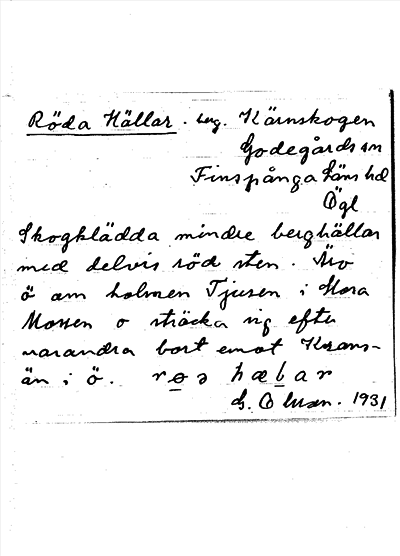 Röda Hällar. berg. Kärnskogen
Godegårds sn
Finspånga läns hd
Ögl
Skogklädda mindre berghällar
med delvis röd sten. Äro
ö om holmen Tjusen i Stora
Mossen o sträcka sig efter
varandra bort emot Krans-
ån i ö. rөə hælar
G. Olsson. 1931